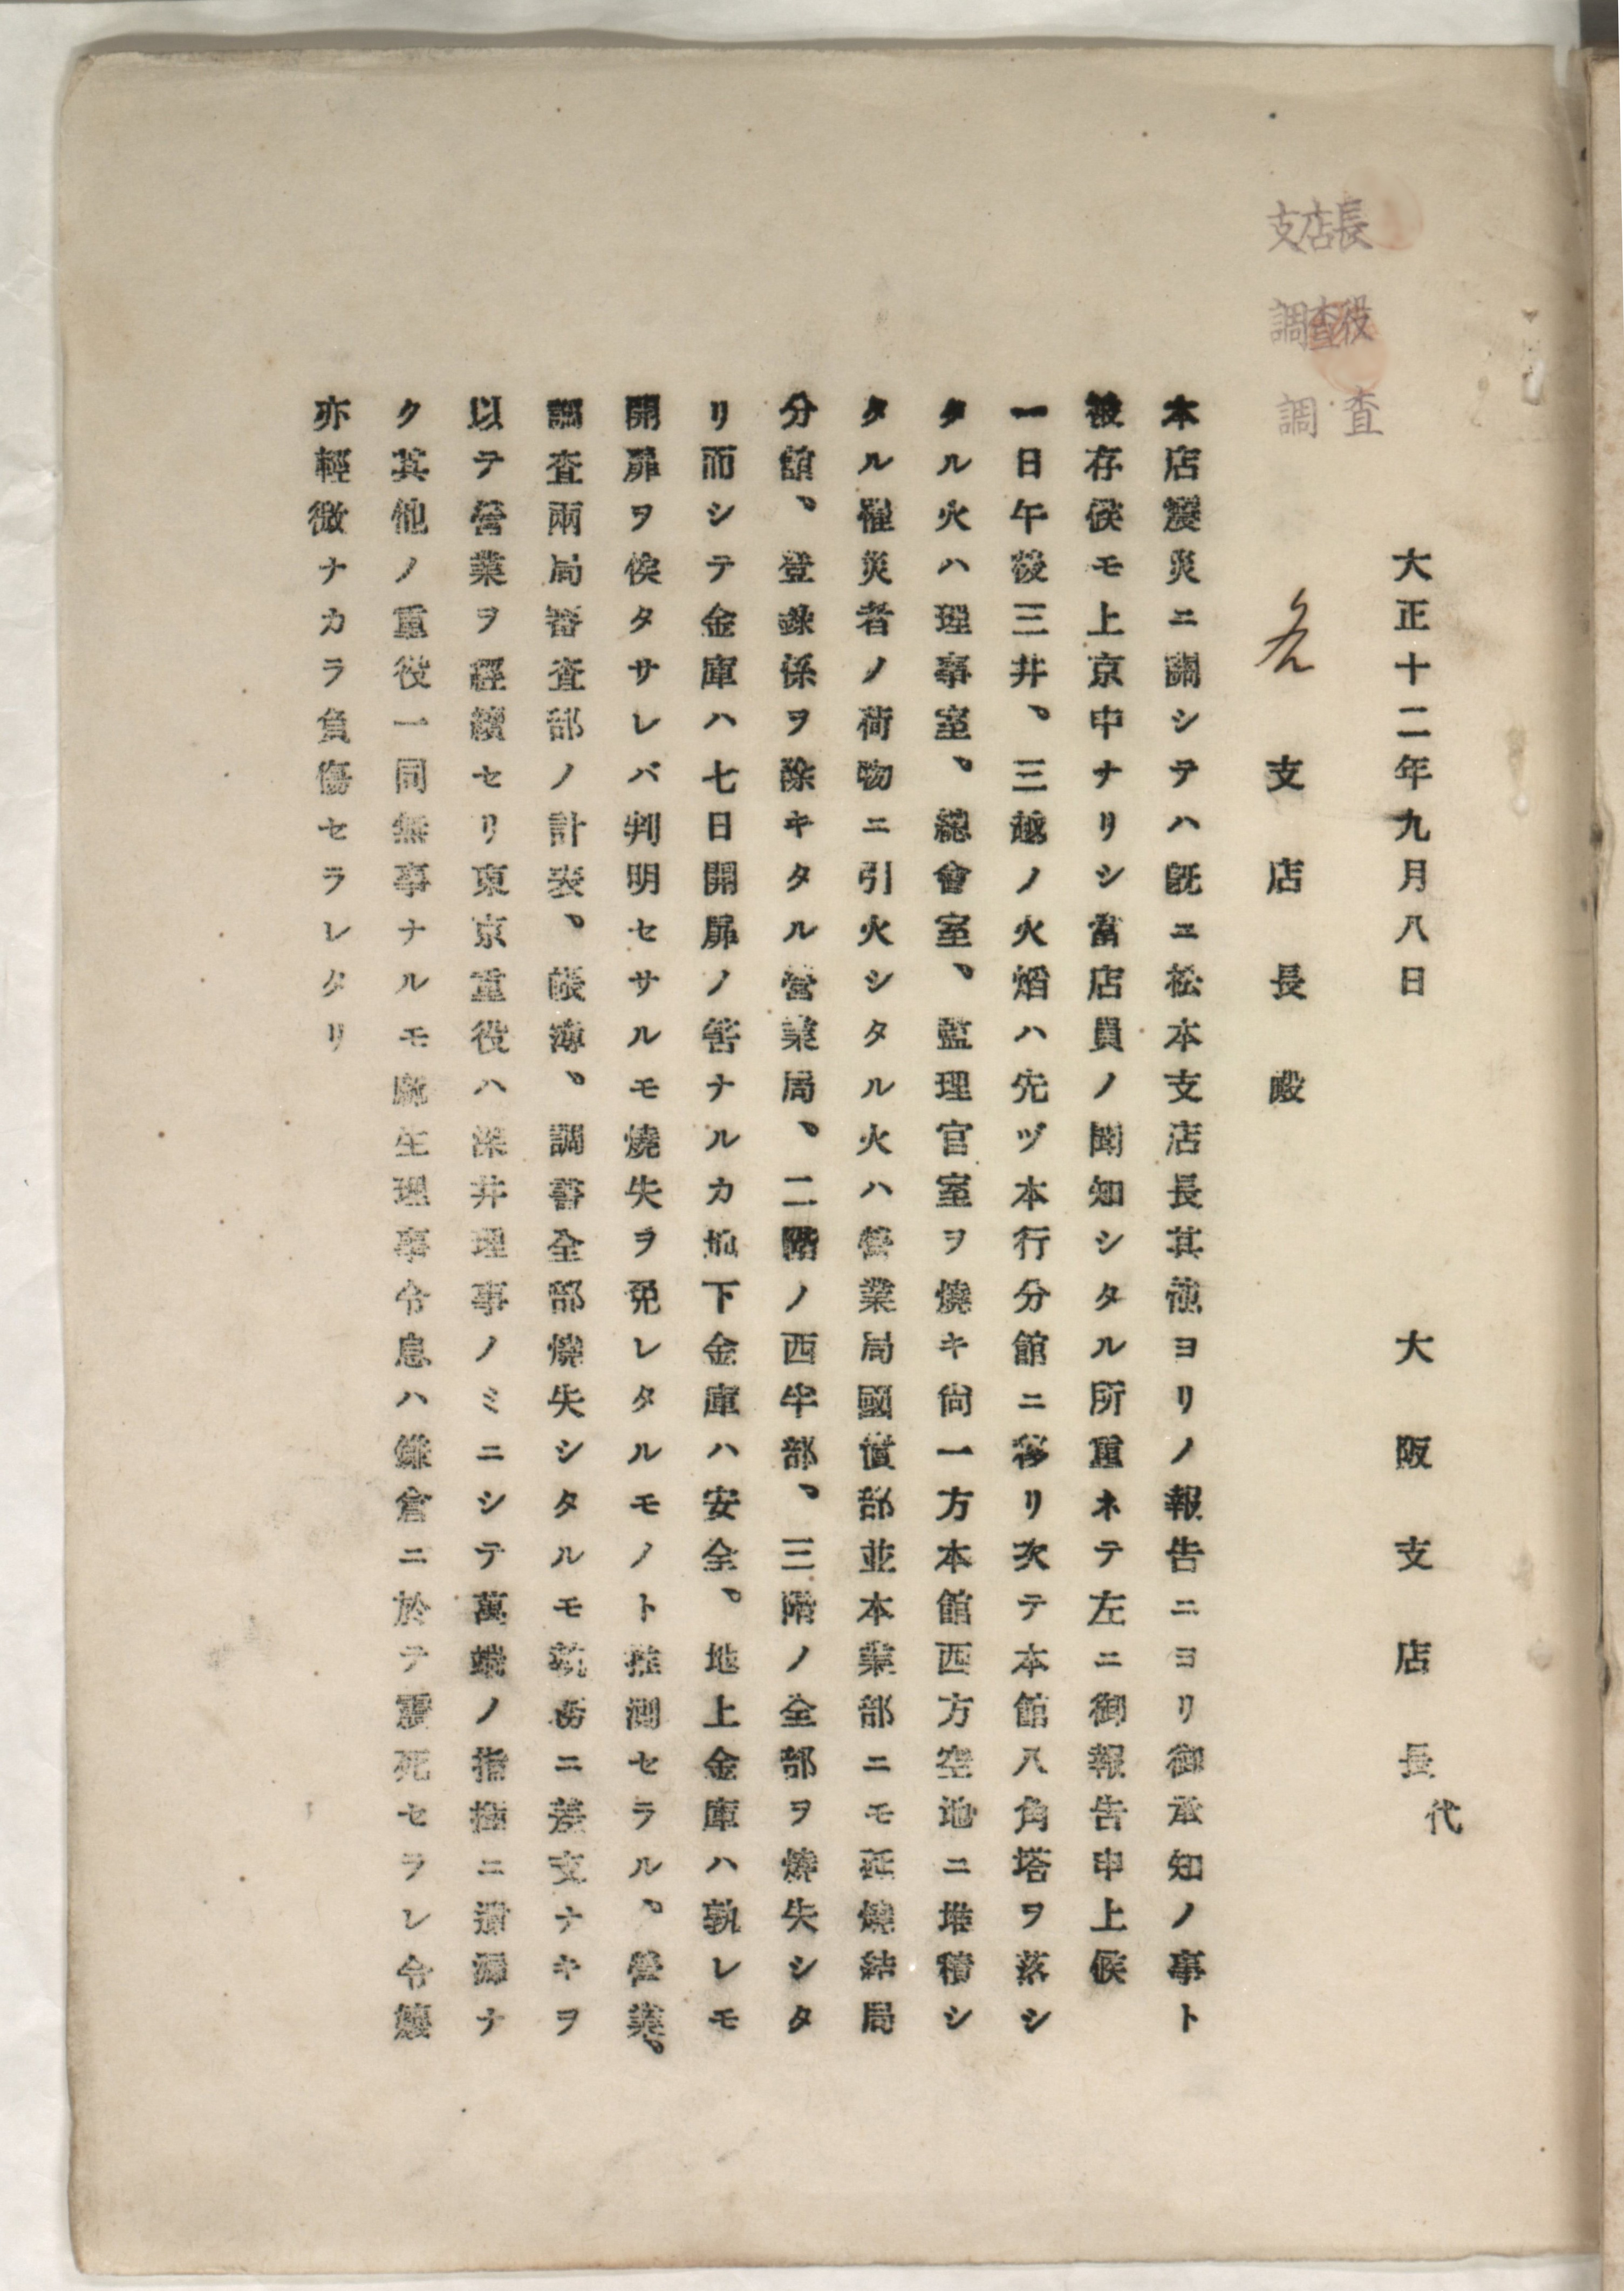 支店長
調査役
調査
大正十二年九月八日
大阪支店長代
各支店長殿
本店震災ニ關シテハ既ニ松本支店長其他ヨリノ報告ニヨリ御承知ノ事ト
被存候モ上京中ナリシ當店員ノ聞知シタル所重ネテ左ニ御報告申上候
一日午後三井、三越ノ火焰ハ先ヅ本行分館ニ移リ次テ本館八角塔ヲ落シ
タル火ハ理事室、總會室、監理官室ヲ燒キ尙一方本館西方空地ニ堆積シ
タル罹災者ノ荷物ニ引火シタル火ハ營業局國債部並本業部ニモ延燒結局
分館、登錄係ヲ除キタル營業局、二階ノ西半部、三階ノ全部ヲ燒失シタ
リ而シテ金庫ハ七日開扉ノ筈ナルカ地下金庫ハ安全、地上金庫ハ孰レモ
開扉ヲ俟タサレバ判明セサルモ燒失ヲ免レタルモノト推測セラル、營業、
調査兩局審査部ノ計表、帳簿、調書全部燒失シタルモ執務ニ差支ナキヲ
以テ營業ヲ繼續セリ東京重役ハ深井理事ノミニシテ萬端ノ指揮ニ遺漏ナ
ク其他ノ重役一同無事ナルモ麻生理事令息ハ鎌倉ニ於テ震死セラレ令孃
亦輕微ナカラ負傷セラレタリ